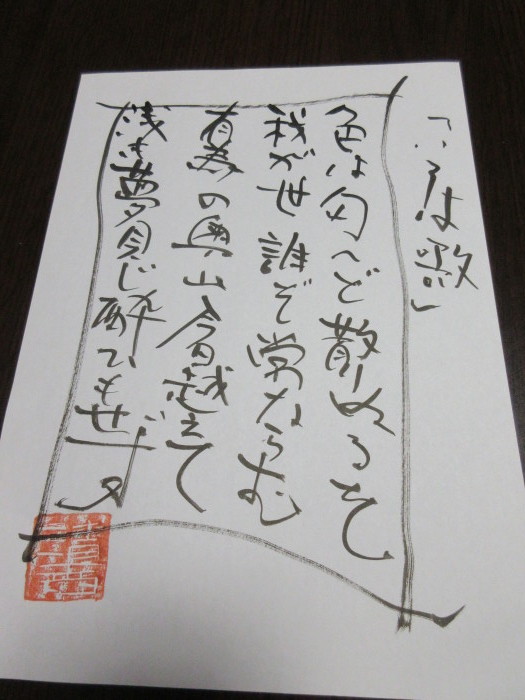 「いろは歌」
色は匂へど散りぬるを
我が世誰ぞ常ならむ
有為の奥山今日越えて
浅き夢見じ酔ひもせず